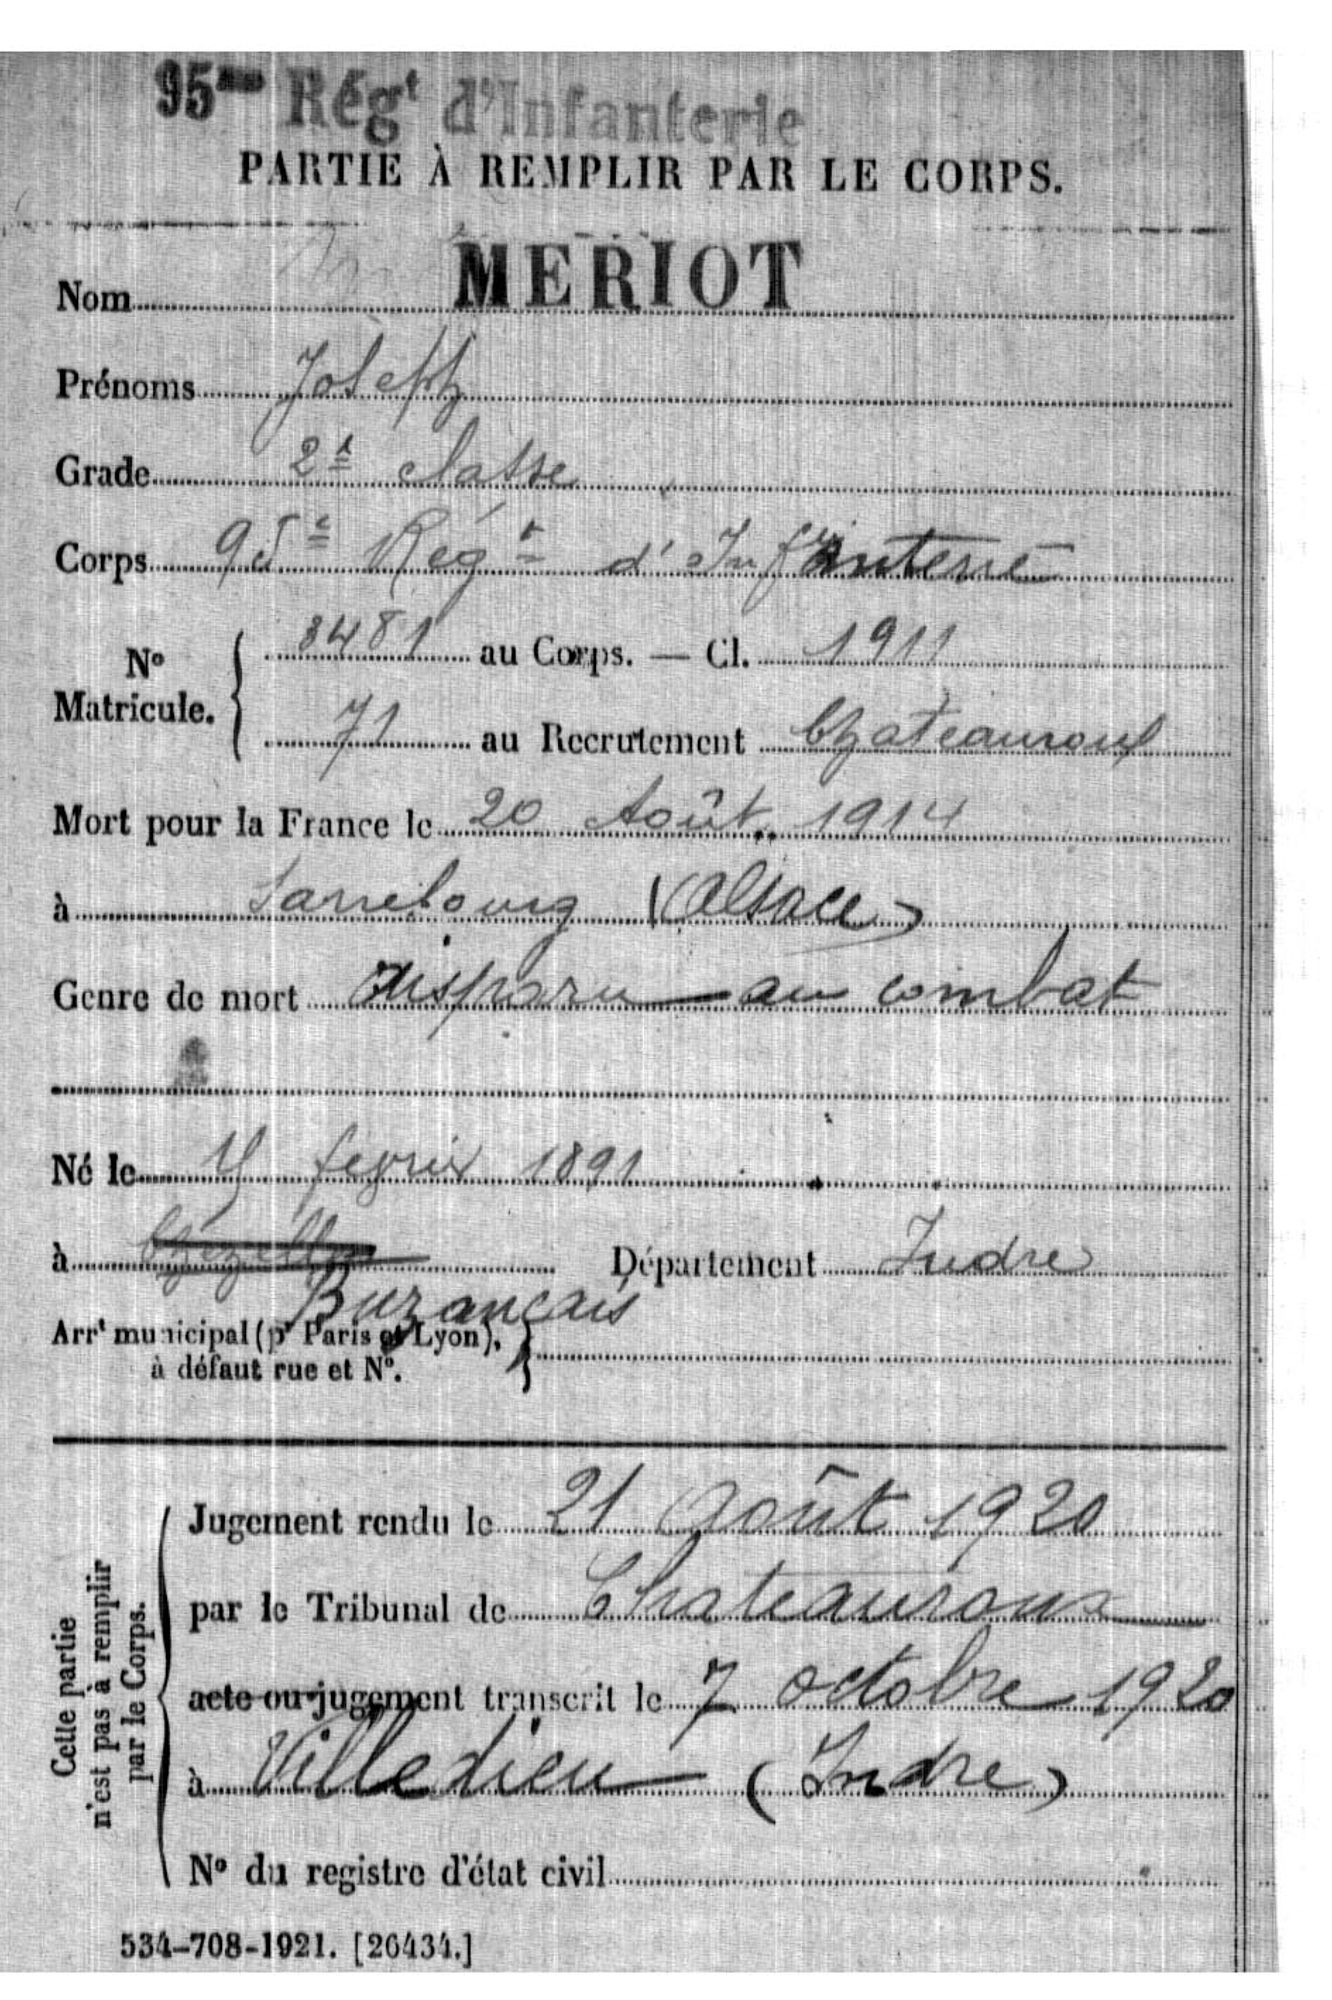 95me Régt d'Infanterie
PARTIE À REMPLIR PAR LE CORPS.
Nom MERIOT
Prénoms Joseph
Grade 2e classe
Corps 95e Régt d'Infanterie
No Matricule. 3481 au Corps. — Cl. 1911
71 au Recrutement Chateauroux
Mort pour la France le 20 Août 1914
à Sarrebourg (Alsace)
Genre de mort disparu au combat
Né le février 1891
à Département Indre
Buzançais
Arrt municipal (pr Paris et Lyon),
à défaut rue et No.
Cette partie
n'est pas à remplir
par le Corps.
Jugement rendu le 21 Août 1920
par le Tribunal de Chateauroux
acte ou jugement transcrit le 7 octobre 1920
à Villedieu (Indre)
No du registre d'état civil
534-708-1921. [26434.]